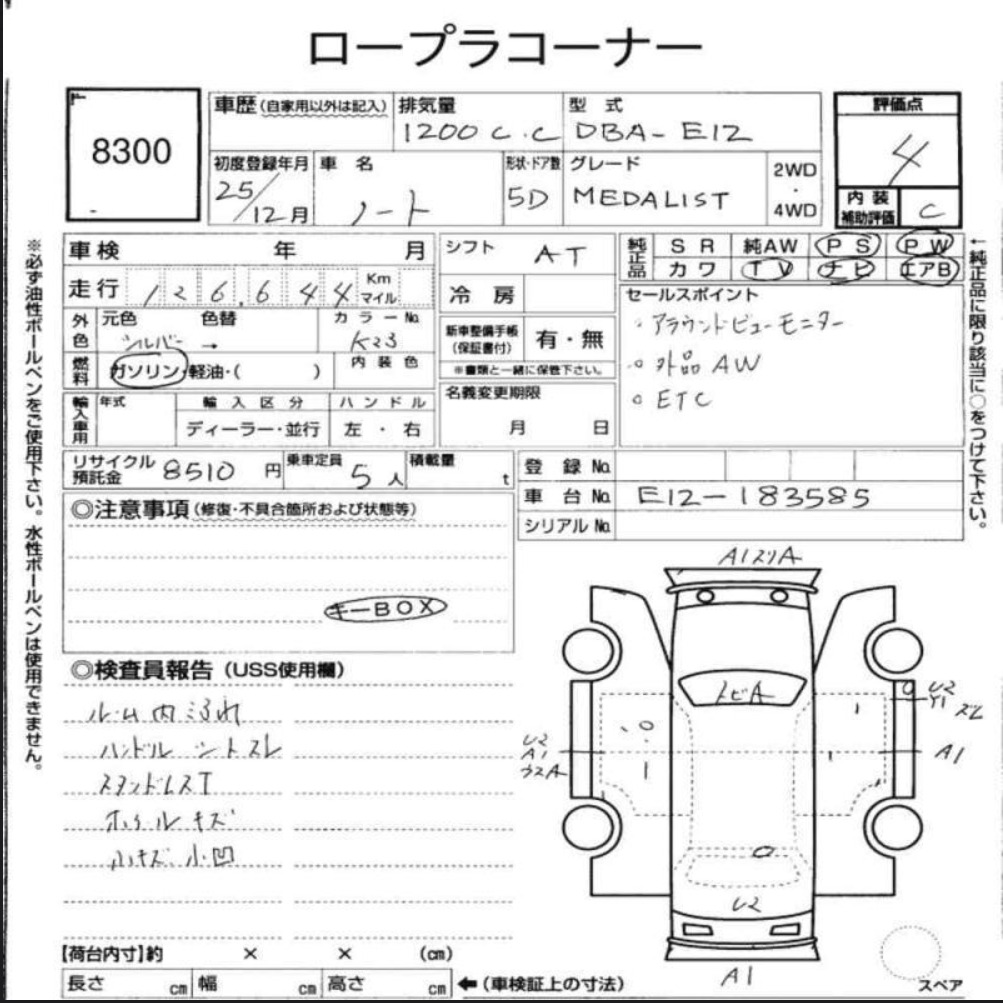 ロープラコーナー
8300
車歴(自家用以外は記入)
排気量
1200 c.c
型式
DBA-E12
評価点
4
内装補助評価
C
初度登録年月
25/12月
車名
ノート
形状・ドア数
5D
グレード
MEDALIST
2WD
・
4WD
※必ず油性ボールペンをご使用下さい。水性ボールペンは使用できません。
車検 年 月
走行 126,644 Km マイル
外色 元色 色替 カラーNo.
シルバー → K23
燃料 ガソリン・軽油・( ) 内装色
輸入車用 年式 輸入区分 ハンドル
ディーラー・並行 左・右
シフト AT
冷房
新車整備手帳(保証書付) 有・無
※書類と一緒に保管下さい。
名義変更期限
月 日
純正品 SR 純AW PS PW
カワ TV ナビ エアB
セールスポイント
◦アラウンドビューモニター
◦外品AW
◦ETC
←純正品に限り該当に○をつけて下さい。
リサイクル預託金 8510円
乗車定員 5人
積載量 t
登録No.
車台No. E12-183585
シリアルNo.
◎注意事項(修復・不具合箇所および状態等)
キーBOX
◎検査員報告(USS使用欄)
ルーム内ヨゴレ
ハンドル シートスレ
ホイールキズ
小キズ 小凹
A1スリA
トビA
U2
A1
U2
Y1
ズレ
A1
U2
A1
【荷台内寸】約 × × (cm)
長さ cm 幅 cm 高さ cm ←(車検証上の寸法)
スペア